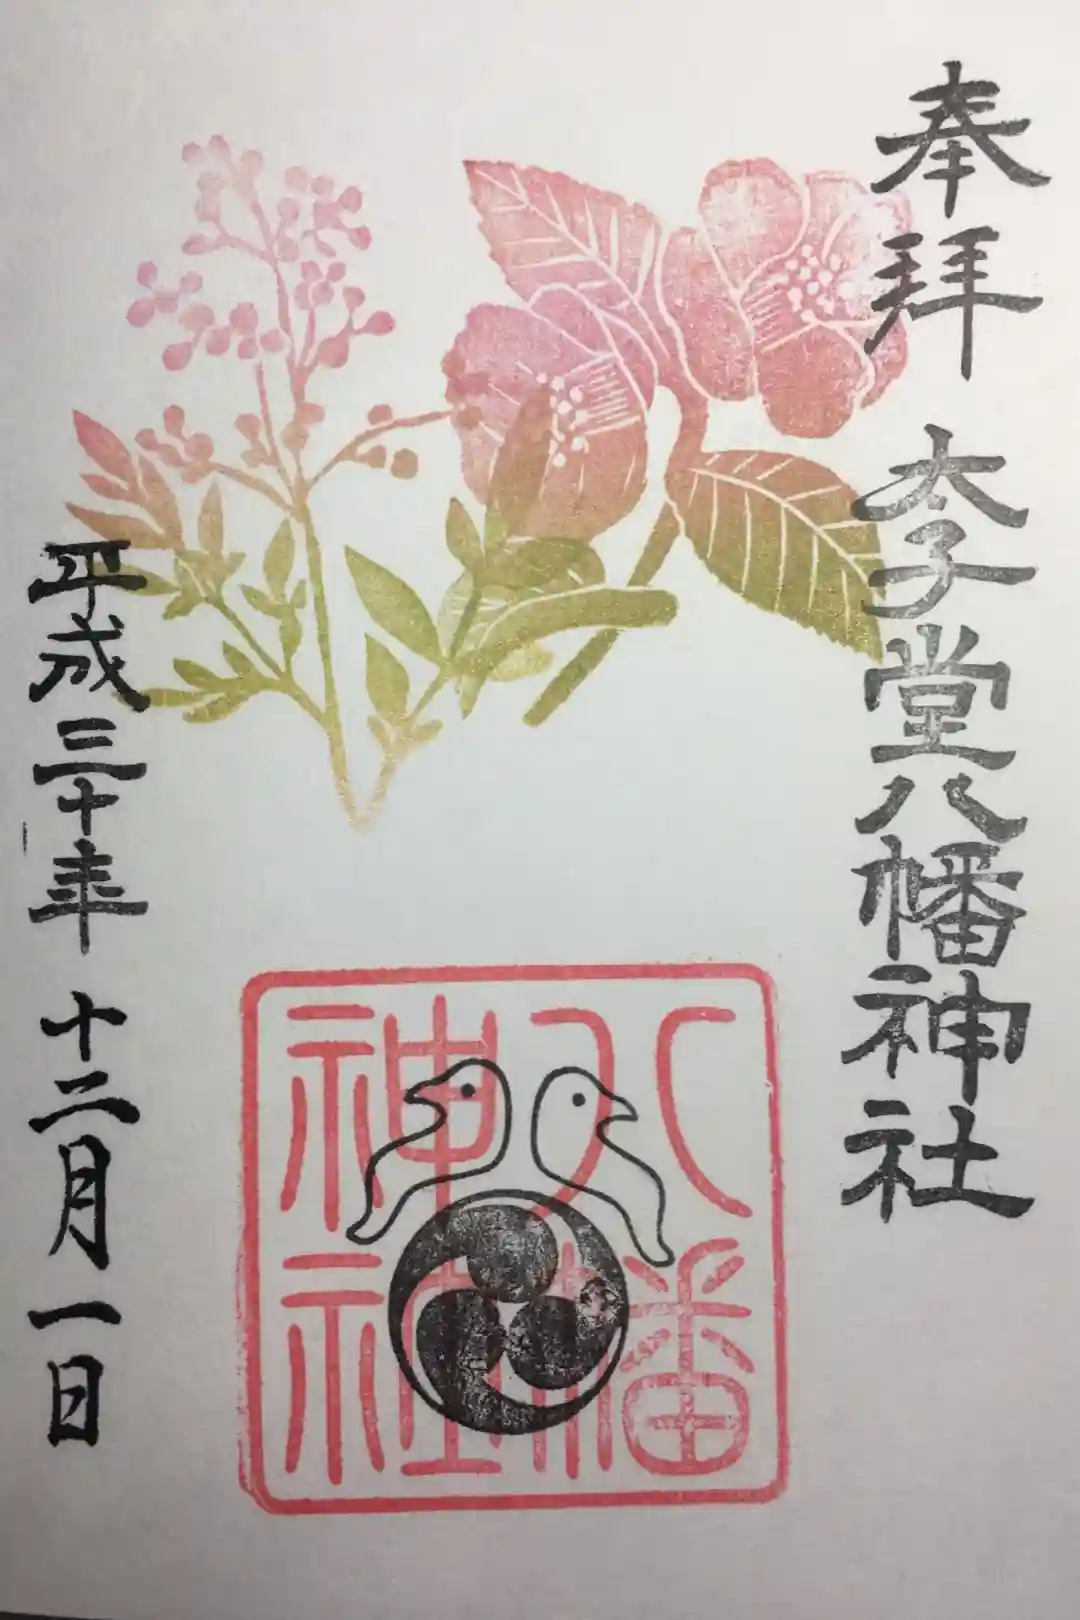 奉拝
太子堂八幡神社
八幡
神社
平成三十年
十二月一日